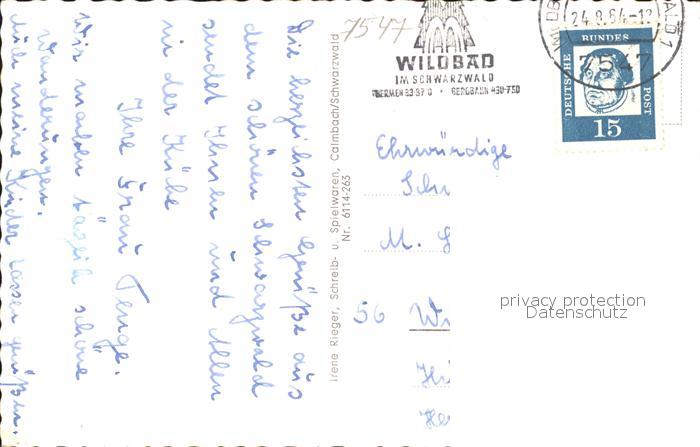 Die herzlichsten Grüße aus
dem schönen Schwarzwald
sendet Ihnen und Allen
in der Küche
Ihre Frau Tenge.
Wir machen täglich schöne
Wanderungen.
Auch meine Kinder lassen grüßen.
Irene Rieger, Schreib- u. Spielwaren, Calmbach/Schwarzwald
Nr. 6114-265
7547
WILDBAD
IM SCHWARZWALD
THERMEN 33-37° · BERGBAHN 430-750
24.8.64-18
7547
DEUTSCHE
BUNDES
POST
15
Ehrwürdige
Schw
M. G
56 Wi
privacy protection
Datenschutz